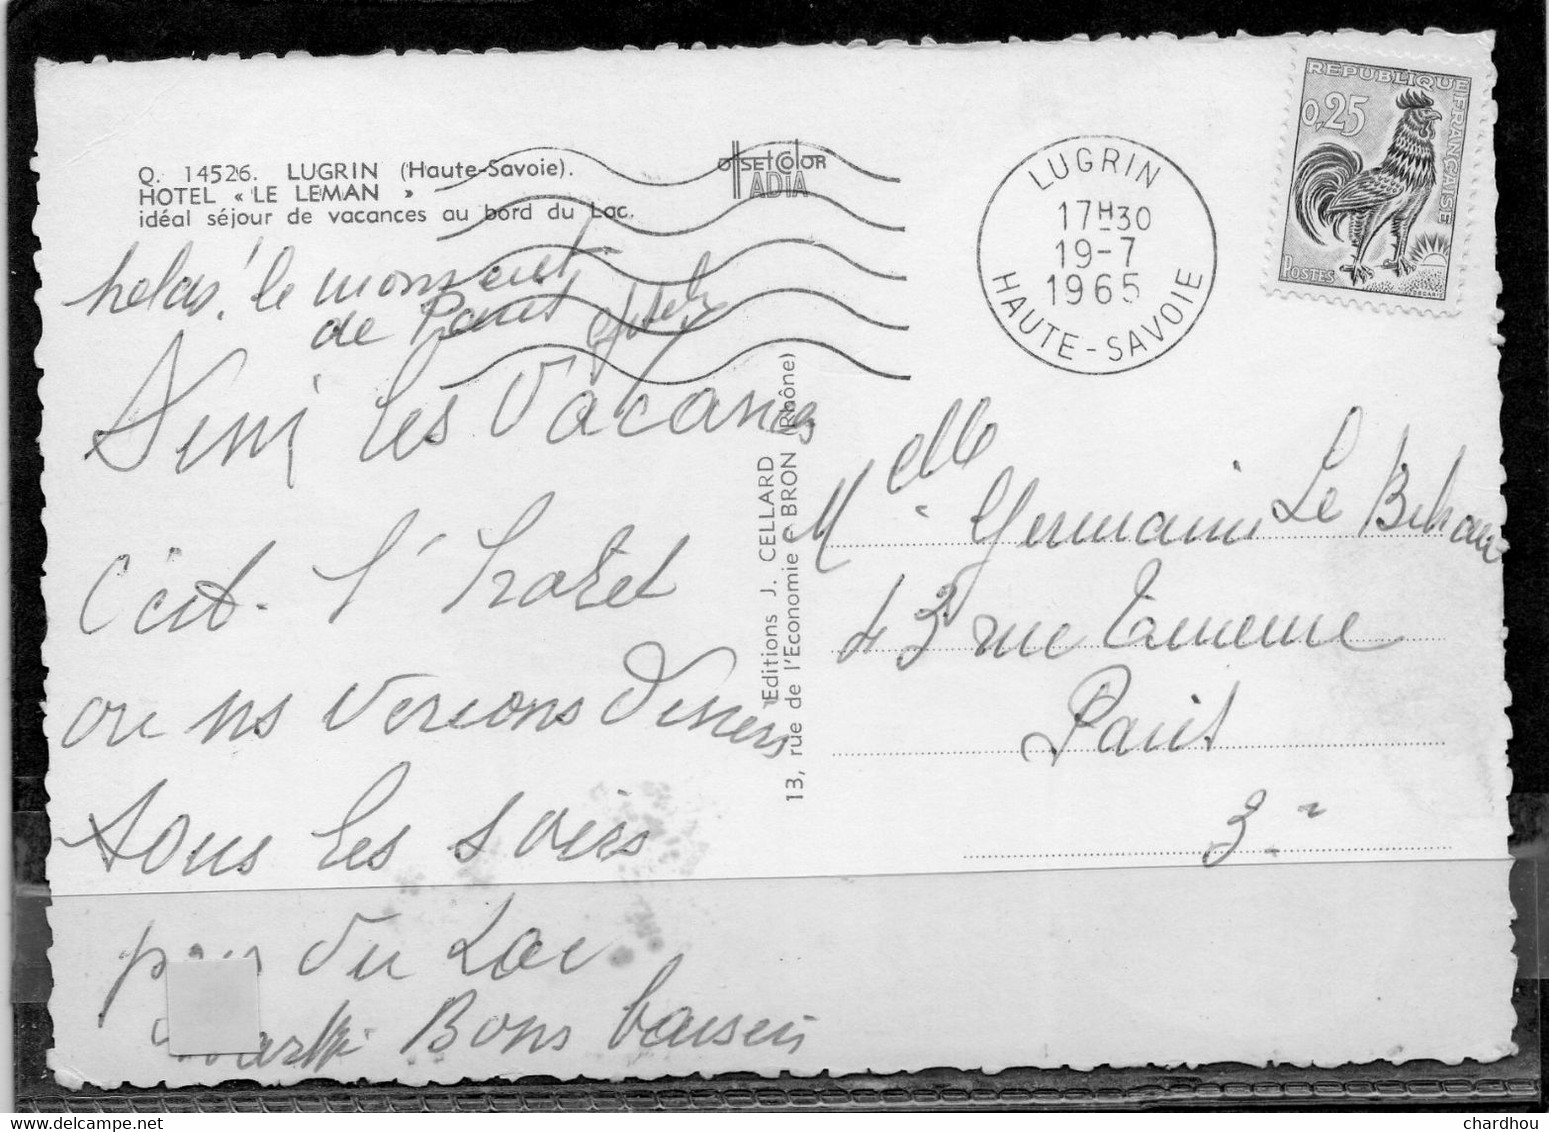 Q. 14526. LUGRIN (Haute-Savoie).
HOTEL « LE LEMAN »
idéal séjour de vacances au bord du Lac.
OFFSET COLOR
ADIA
LUGRIN
17H30
19-7
1965
HAUTE-SAVOIE
REPUBLIQUE FRANÇAISE
0,25
POSTES
DECARIS
helas! le moment
de
les Vacances
C'est l'hotel
ou ns venions Diner
tous les soirs
près du Lac
Bons baisers
Editions J. CELLARD
13, rue de l'Economie - BRON (Rhône)
Melle Germaine Le Bihan
43 rue Turenne
Paris
3e
chardhou